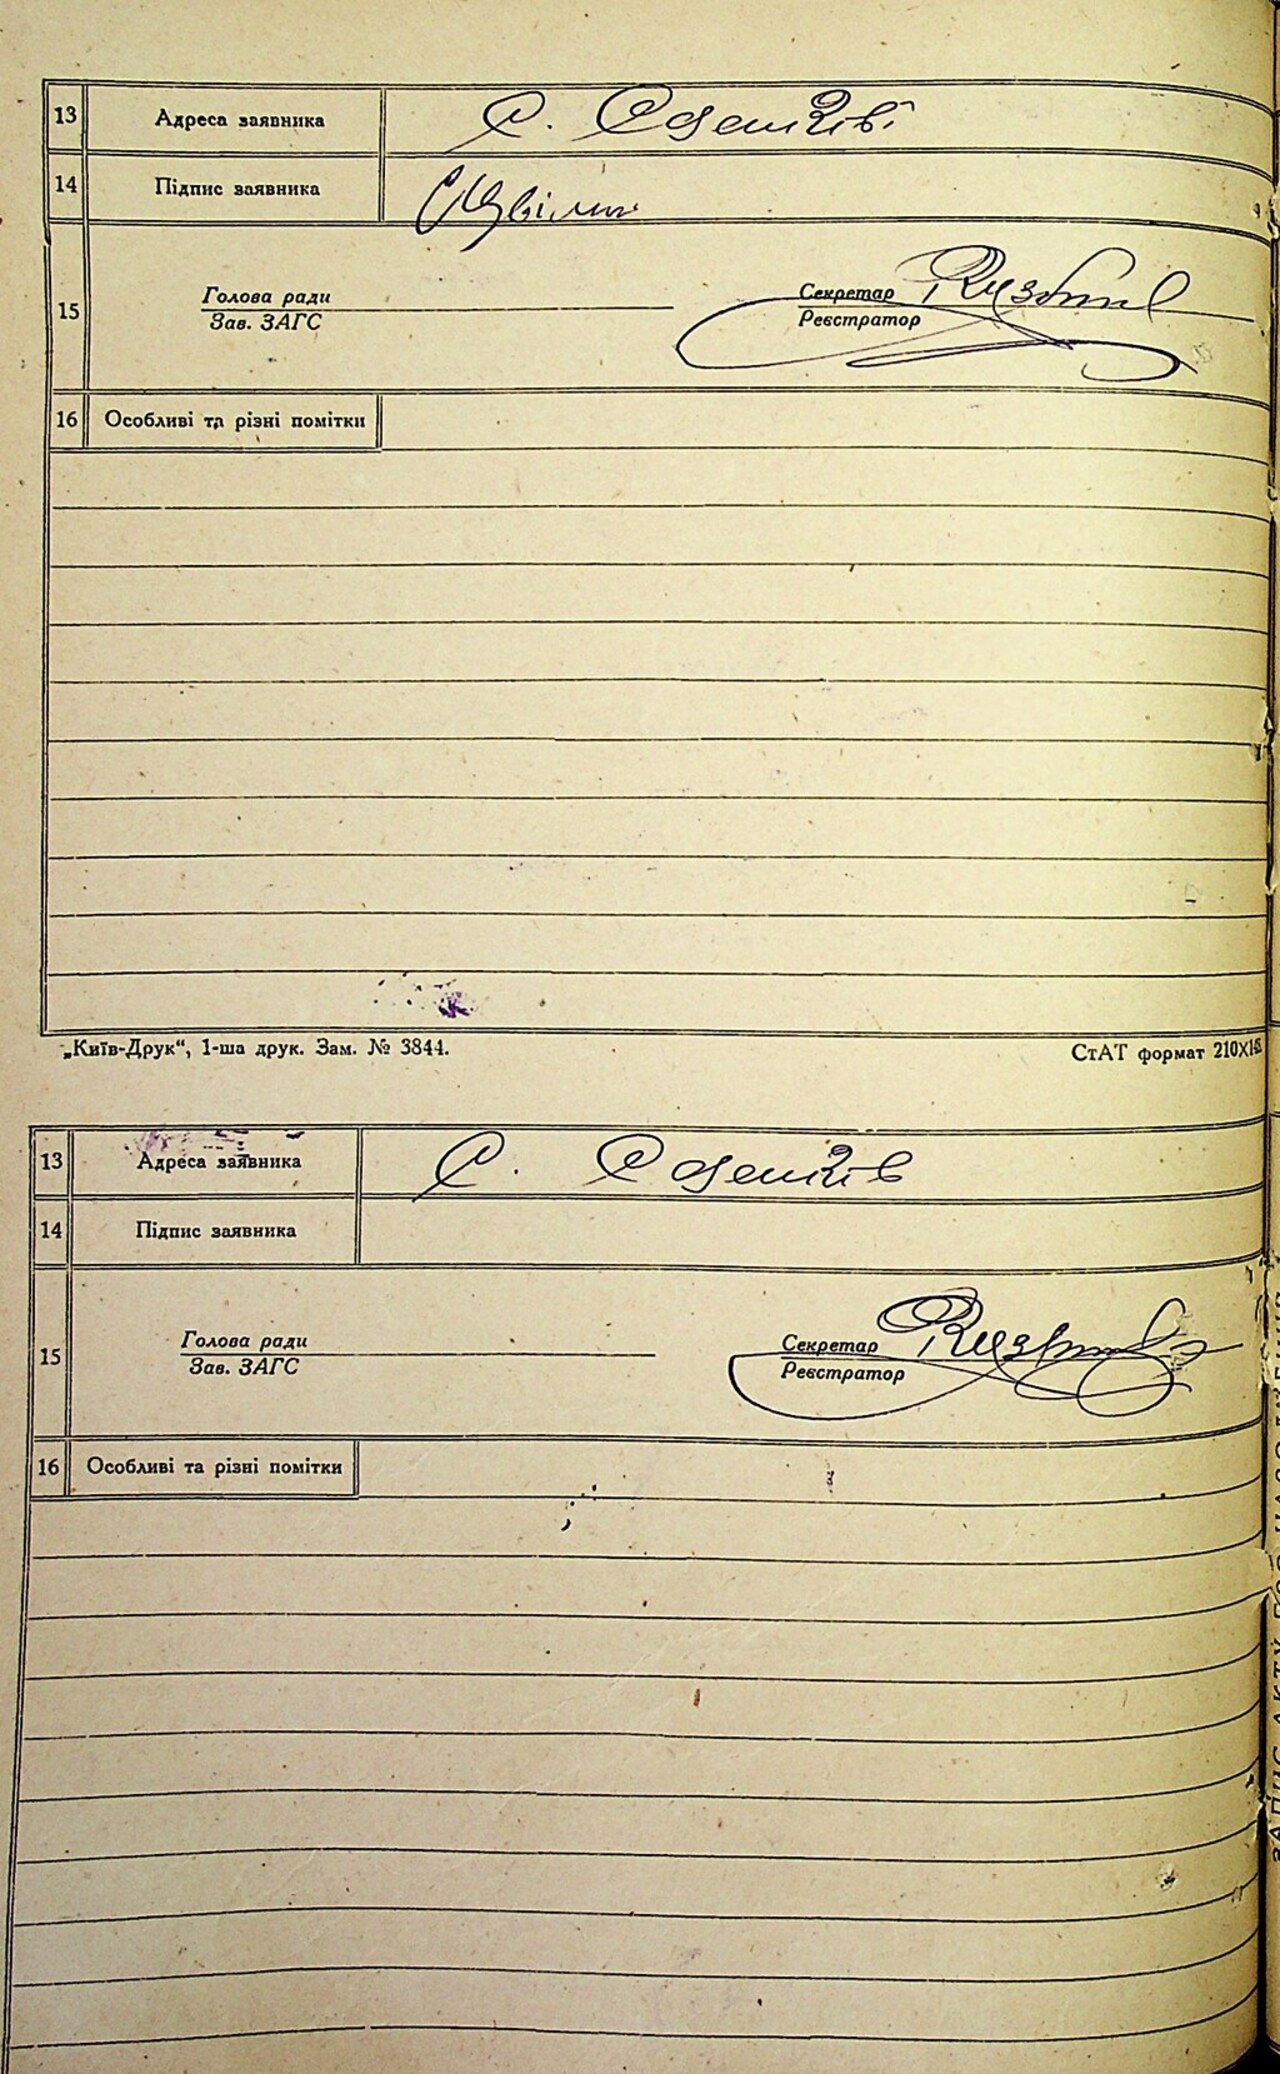 13 Адреса заявника С.
14 Підпис заявника
15 Голова ради Секретар
Зав. ЗАГС Реєстратор
16 Особливі та різні помітки
„Київ-Друк“, 1-ша друк. Зам. № 3844. СтАТ формат
13 Адреса заявника С.
14 Підпис заявника
15 Голова ради Секретар
Зав. ЗАГС Реєстратор
16 Особливі та різні помітки